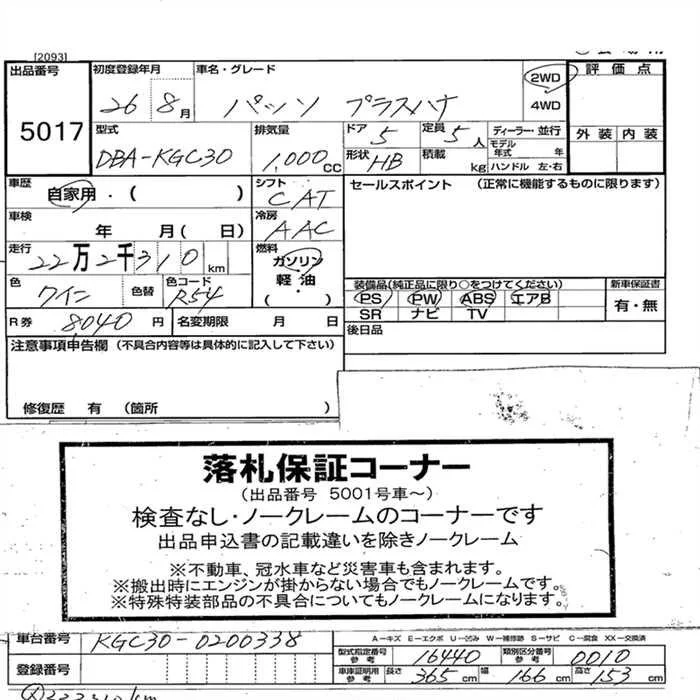 [2093]
出品番号
5017
初度登録年月
26 8月
車名・グレード
パッソ プラスハナ
2WD
4WD
評価点
外装 内装
型式
DBA-KGC30
排気量
1,000 CC
ドア 5
定員 5人
形状 HB
積載 kg
ディーラー・並行
モデル年式 年
ハンドル 左・右
車歴
自家用・( )
シフト
CAT
セールスポイント (正常に機能するものに限ります)
車検
年 月( 日)
冷房
AAC
走行
22万2千310km
燃料
ガソリン
軽油・
( )
色
ワイン
色替
色コード
R54
装備品(純正品に限り○をつけてください)
PS PW ABS エアB
SR ナビ TV
新車保証書
有・無
R券 8040円
名変期限 月 日
後日品
注意事項申告欄 (不具合内容等は具体的に記入して下さい)
修復歴 有 (箇所 )
落札保証コーナー
(出品番号 5001号車~)
検査なし・ノークレームのコーナーです
出品申込書の記載違いを除きノークレーム
※不動車、冠水車など災害車も含まれます。
※搬出時にエンジンが掛からない場合でもノークレームです。
※特殊特装部品の不具合についてもノークレームになります。
車台番号 KGC30-0200338
A-キズ E-エクボ U-凹み W-補修跡 S-サビ C-腐食 XX-交換済
型式指定番号 参考 16440
類別区分番号 参考 0010
登録番号
車庫証明用 参考
長さ 365cm 幅 166cm 高さ 153cm